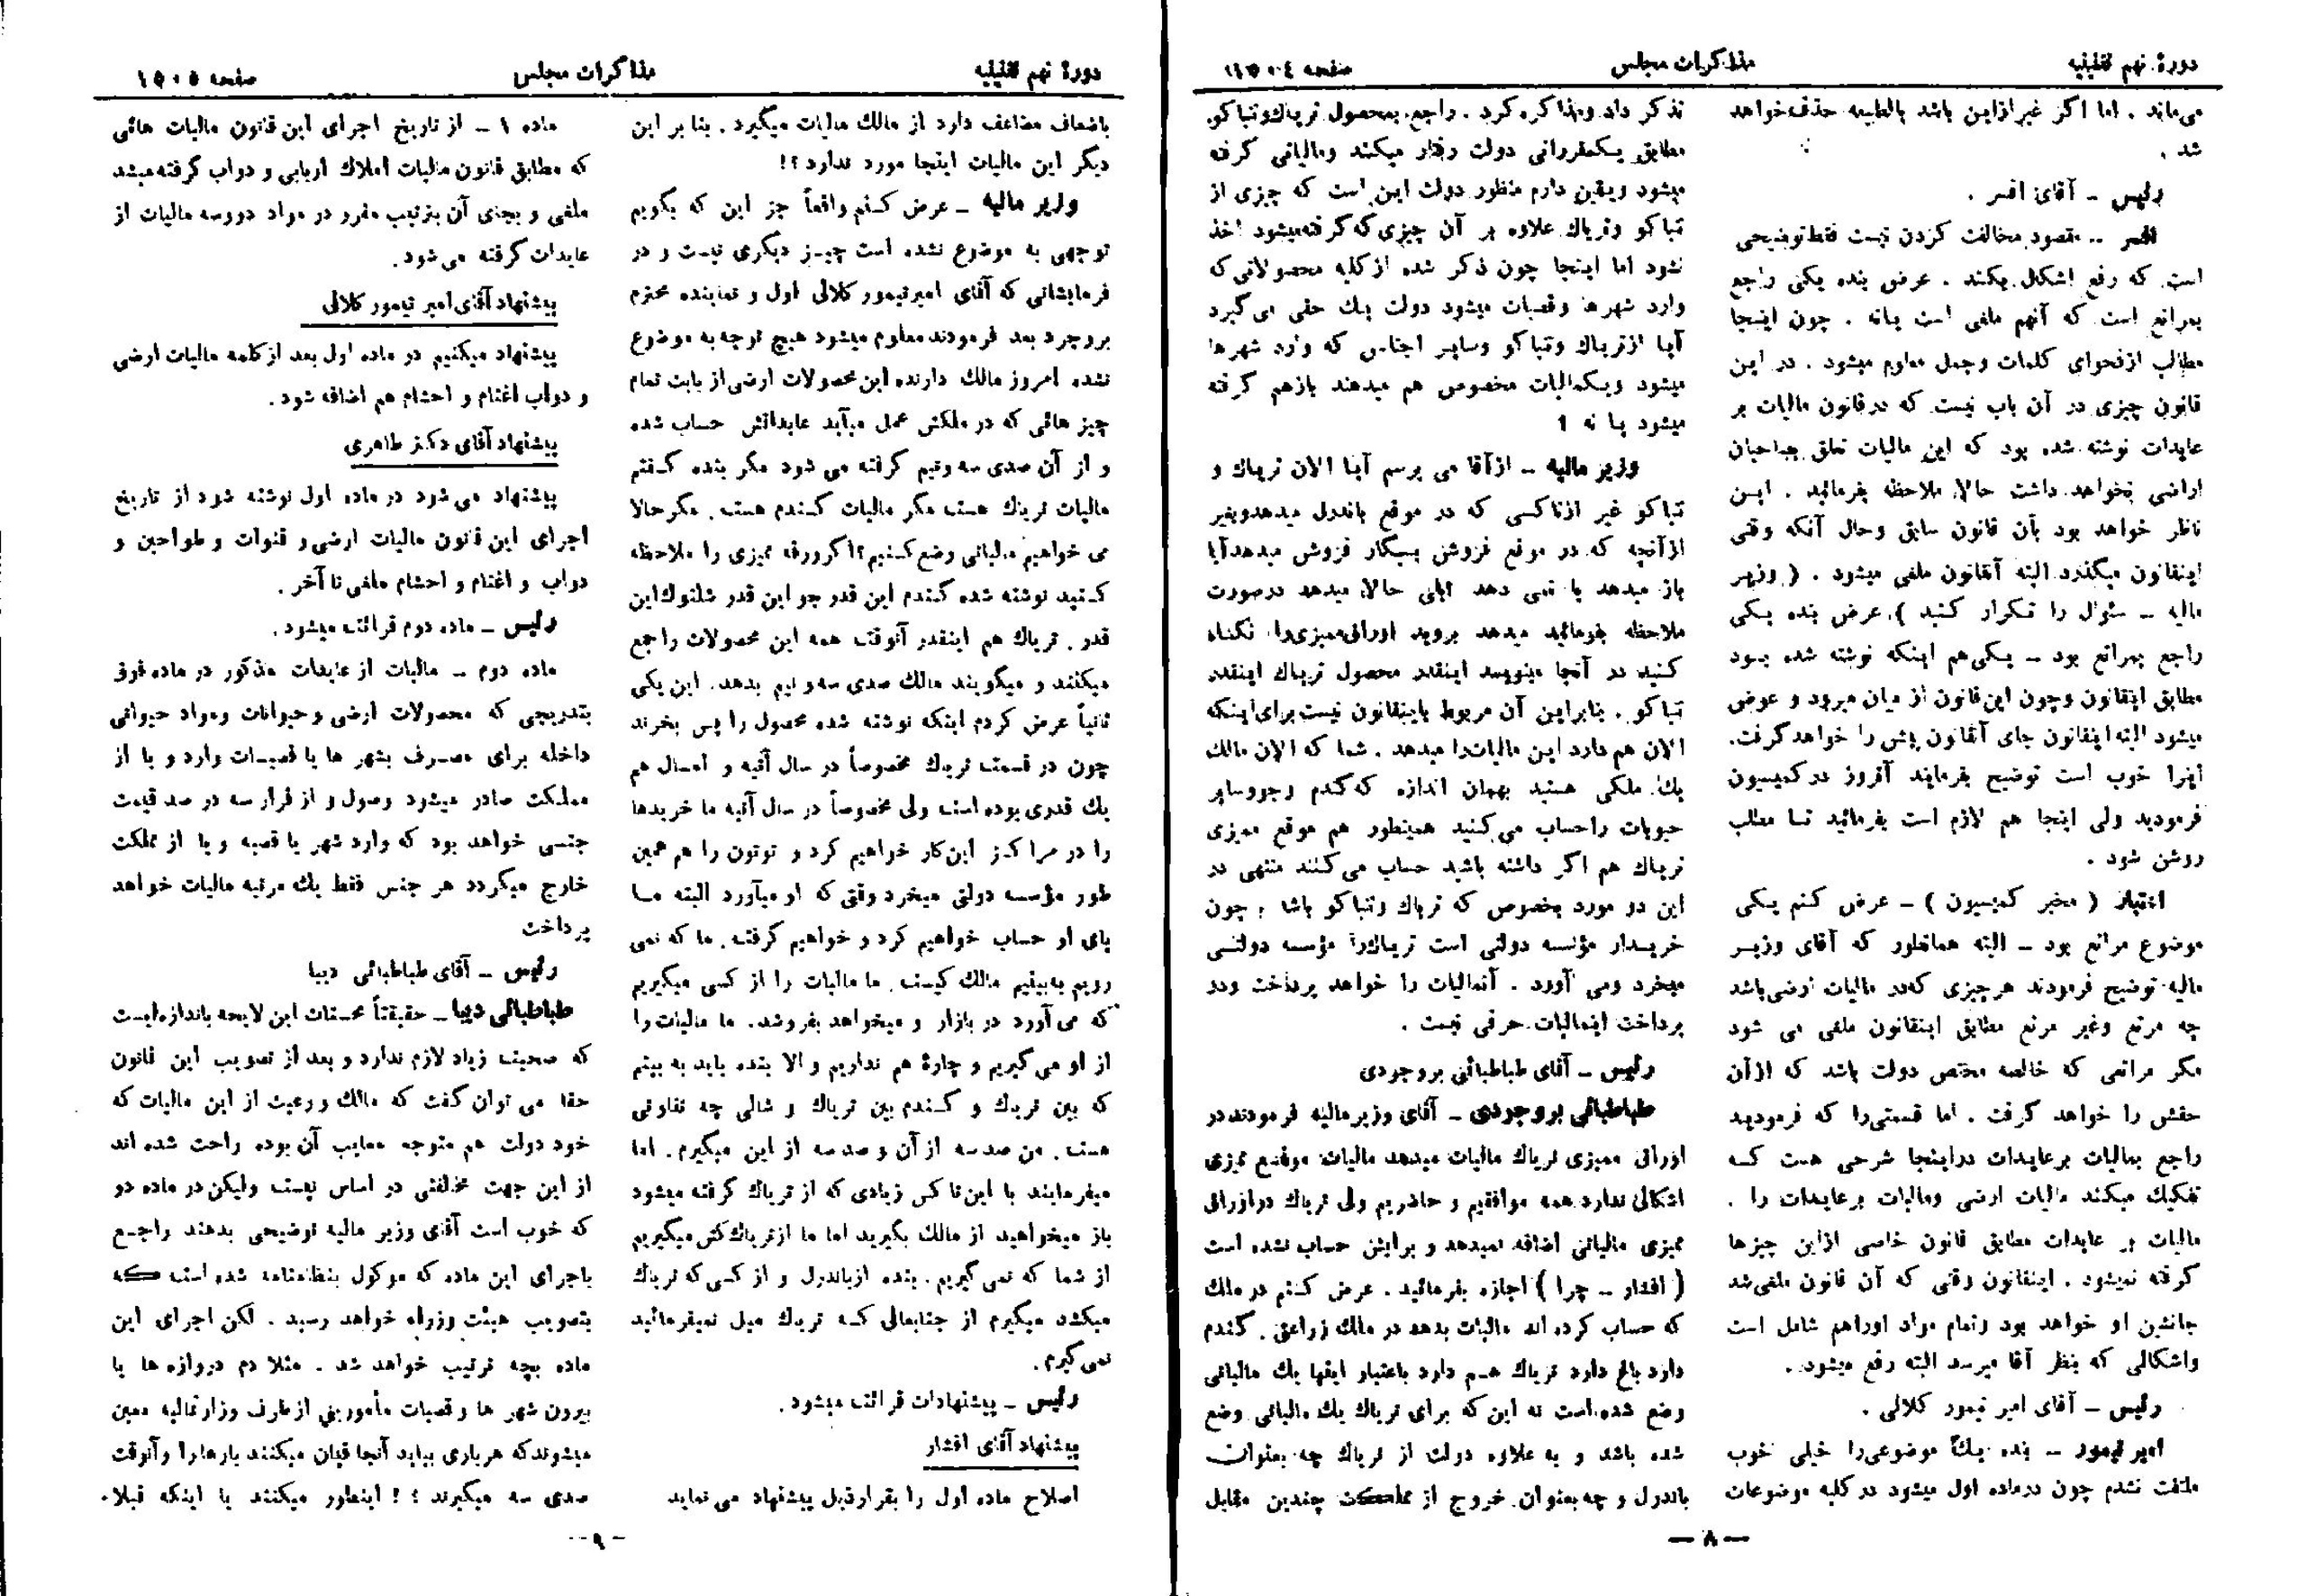 دورهٔ نهم تقنینیه
مذاکرات مجلس
صفحه ۱۵۰٤
می‌ماند . اما اگر غیر ازاین باشد بالطبیعه حذف خواهد
شد .
رئیس - آقای افسر .
افسر - مقصود مخالفت کردن نیست فقط توضیحی
است که رفع اشکال بکند . عرض بنده یکی راجع
بمراتع است که آنهم ملغی است یا نه . چون اینجا
مطالب از فحوای کلمات و جمل معلوم میشود . در این
قانون چیزی در آن باب نیست که در قانون مالیات بر
عایدات نوشته شده بود که این مالیات تعلق بصاحبان
اراضی نخواهد داشت حالا ملاحظه بفرمائید . این
ناظر خواهد بود بآن قانون سابق وحال آنکه وقتی
اینقانون میگذرد البته آنقانون ملغی میشود . ( وزیر
مالیه - سئوال را تکرار کنید ) عرض بنده یکی
راجع بمراتع بود - یکی هم اینکه نوشته شده بود
مطابق اینقانون و چون این قانون از میان میرود و عوض
میشود البته اینقانون جای آنقانون پیش را خواهد گرفت.
اینرا خوب است توضیح بفرمایند آنروز در کمیسیون
فرمودید ولی اینجا هم لازم است بفرمائید تا مطلب
روشن شود .
اعتبار ( مخبر کمیسیون ) - عرض کنم یکی
موضوع مراتع بود - البته همانطور که آقای وزیر
مالیه توضیح فرمودند هر چیزی که در مالیات ارضی باشد
چه مرتع وغیر مرتع مطابق اینقانون ملغی می شود
مگر مراتعی که خالصه مختص دولت باشد که از آن
حقش را خواهد گرفت . اما قسمتی را که فرمودید
راجع بمالیات بر عایدات در اینجا شرحی هست که
تفکیک میکند مالیات ارضی ومالیات بر عایدات را .
مالیات بر عایدات مطابق قانون خاصی ازاین چیزها
گرفته نمیشود . اینقانون وقتی که آن قانون ملغی شد
جانشین او خواهد بود و تمام مواد او را هم شامل است
واشکالی که بنظر آقا میرسد البته رفع میشود .
رئیس - آقای امیر تیمور کلالی .
امیر تیمور - بنده یک موضوعی را خیلی خوب
ملتفت نشدم چون در ماده اول میشود در کلیه موضوعات
تذکر داد ومذاکره کرد . راجع بمحصول تریاک و تنباکو
مطابق یکمقرراتی دولت رفتار میکند ومالیاتی گرفته
میشود و یقین دارم منظور دولت این است که چیزی از
تنباکو وتریاک علاوه بر آن چیزی که گرفته میشود اخذ
نشود اما اینجا چون ذکر شده از کلیه محصولاتی که
وارد شهرها وقصبات میشود دولت یک حقی می گیرد
آیا از تریاک و تنباکو وسایر اجناس که وارد شهرها
میشود ویکمالیات مخصوص هم میدهند باز هم گرفته
میشود یا نه ؟
وزیر مالیه - از آقا می پرسم آیا الان تریاک و
تنباکو غیر از تاکسی که در موقع باندرل میدهد و بغیر
از آنچه که در موقع فروش بسیگار فروش میدهد آیا
باز میدهد یا نمی دهد الی حالا میدهد در صورت
ملاحظه بفرمائید میدهد بروید اوراق ممیزی را نگاه
کنید در آنجا مینویسد اینقدر محصول تریاک اینقدر
تنباکو . بنابراین آن مربوط باینقانون نیست برای اینکه
الان هم دارد این مالیات را میدهد . شما که الان مالک
یک ملکی هستید بهمان اندازه که گندم وجو وسایر
حبوبات را حساب می کنید همینطور هم موقع ممیزی
تریاک هم اگر داشته باشید حساب می کنند منتهی در
این دو مورد بخصوص که تریاک وتنباکو باشد چون
خریدار مؤسسه دولتی است تریاک را مؤسسه دولتی
میخرد ومی آورد . آنمالیات را خواهد پرداخت ودر
پرداخت اینمالیات حرفی نیست .
رئیس - آقای طباطبائی بروجردی
طباطبائی بروجردی - آقای وزیر مالیه فرمودند در
اوراق ممیزی تریاک مالیات میدهد مالیات موقع ممیزی
اشکالی ندارد همه موافقیم و حاضریم ولی تریاک در اوراق
ممیزی مالیاتی اضافه نمیدهد و برایش حساب نشده است
( افشار - چرا ) اجازه بفرمائید . عرض کنم در ملک
که حساب کرده اند مالیات بدهد در مالک زراعتی . گندم
دارد باغ دارد تریاک هم دارد باعتبار اینها یک مالیاتی
وضع شده است نه این که برای تریاک یک مالیاتی وضع
شده باشد و به علاوه دولت از تریاک چه بعنوان
باندرل و چه بعنوان خروج از مملکت چندین مقابل
— ۸ —
دورهٔ نهم تقنینیه
مذاکرات مجلس
صفحه ۱۵۰۵
باضعاف مضاعف دارد از مالک مالیات میگیرد . بنا بر این
دیگر این مالیات اینجا مورد ندارد؟!
وزیر مالیه - عرض کنم واقعاً جز این که بگویم
توجهی به موضوع نشده است چیز دیگری نیست و در
فرمایشاتی که آقای امیر تیمور کلالی اول و نماینده محترم
بروجرد بعد فرمودند معلوم میشود هیچ توجه به موضوع
نشده امروز مالک دارنده این محصولات ارضی از بابت تمام
چیز هائی که در ملکش عمل میآید عایداتش حساب شده
و از آن صدی سه و نیم گرفته می شود مگر بنده گفتم
مالیات تریاک هست مگر مالیات گندم هست . مگر حالا
می خواهیم مالیاتی وضع کنیم؟ اگر ورقه ممیزی را ملاحظه
کنید نوشته شده گندم این قدر جو این قدر شلتوک این
قدر . تریاک هم اینقدر آنوقت همه این محصولات را جمع
میکنند و میگویند مالک صدی سه و نیم بدهد . این یکی
ثانیاً عرض کردم اینکه نوشته شده محصول را پس بخرند
چون در قسمت تریاک مخصوصاً در سال آتیه و امسال هم
یک قدری بوده است ولی مخصوصاً در سال آتیه ما خریدها
را در مراکز این کار خواهیم کرد و توتون را هم همین
طور مؤسسه دولتی میخرد وقتی که او میآورد البته ما
پای او حساب خواهیم کرد و خواهیم گرفت . ما که نمی
رویم به‌بینیم مالک کیست . ما مالیات را از کسی میگیریم
که می آورد در بازار و میخواهد بفروشد . ما مالیات را
از او می گیریم و چارهٔ هم نداریم و الا بنده باید به بینم
که بین تریاک و گندم بین تریاک و شالی چه تفاوتی
هست . من صد سه از آن و صد سه از این میگیرم . اما
میفرمایند با این تاکس زیادی که از تریاک گرفته میشود
باز میخواهید از مالک بگیرید اما ما از تریاک کش میگیریم
از شما که نمی گیریم . بنده از باندرل و از کسی که تریاک
میکشد میگیرم از جنابعالی که تریاک میل نمیفرمائید
نمی گیرم .
رئیس - پیشنهادات قرائت میشود .
پیشنهاد آقای افشار
اصلاح ماده اول را بقرار ذیل پیشنهاد می نماید
ماده ۱ - از تاریخ اجرای این قانون مالیات هائی
که مطابق قانون مالیات املاک اربابی و دواب گرفته میشد
ملغی و بجای آن بترتیب مقرر در مواد دو وسه مالیات از
عایدات گرفته می شود .
پیشنهاد آقای امیر تیمور کلالی
پیشنهاد میکنیم در ماده اول بعد از کلمه مالیات ارضی
و دواب اغنام و احشام هم اضافه شود .
پیشنهاد آقای دکتر طاهری
پیشنهاد می شود در ماده اول نوشته شود از تاریخ
اجرای این قانون مالیات ارضی و قنوات و طواحین و
دواب و اغنام و احشام ملغی تا آخر .
رئیس - ماده دوم قرائت میشود .
ماده دوم - مالیات از عایدات مذکور در ماده فوق
بتدریجی که محصولات ارضی و حیوانات ومواد حیوانی
داخله برای مصرف بشهر ها یا قصبات وارد و یا از
مملکت صادر میشود وصول و از قرار سه در صد قیمت
جنسی خواهد بود که وارد شهر یا قصبه و یا از مملکت
خارج میگردد هر جنس فقط یک مرتبه مالیات خواهد
پرداخت
رئیس - آقای طباطبائی دیبا
طباطبائی دیبا - حقیقتاً محسنات این لایحه باندازه‌ایست
که صحبت زیاد لازم ندارد و بعد از تصویب این قانون
حقا می توان گفت که مالک و رعیت از این مالیات که
خود دولت هم متوجه معایب آن بوده راحت شده اند
از این جهت مخالفتی در اساس نیست ولیکن در ماده دو
که خوب است آقای وزیر مالیه توضیحی بدهند راجع
باجرای این ماده که موکول بنظامنامه شده است که
بتصویب هیئت وزراء خواهد رسید . لکن اجرای این
ماده بچه ترتیب خواهد شد . مثلا دم دروازه ها یا
بیرون شهر ها و قصبات مأمورینی از طرف وزارتمالیه معین
میشوند که هر باری بیاید آنجا قپان میکنند بارها را و آنوقت
صدی سه میگیرند ؟ ! اینطور میکنند یا اینکه قبلا
— ۹ —